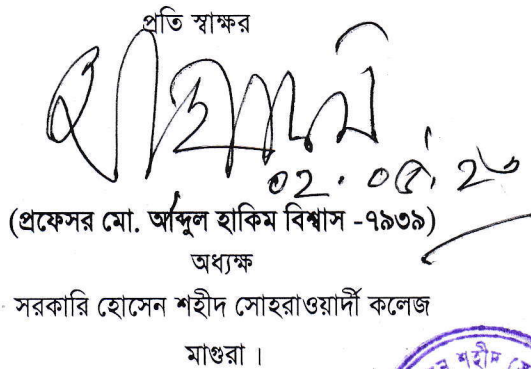 প্রতি স্বাক্ষর
০২. ০৫. ২৬
(প্রফেসর মো. আব্দুল হাকিম বিশ্বাস -৭৯৩৯)
অধ্যক্ষ
সরকারি হোসেন শহীদ সোহরাওয়ার্দী কলেজ
মাগুরা ।
শহীদ